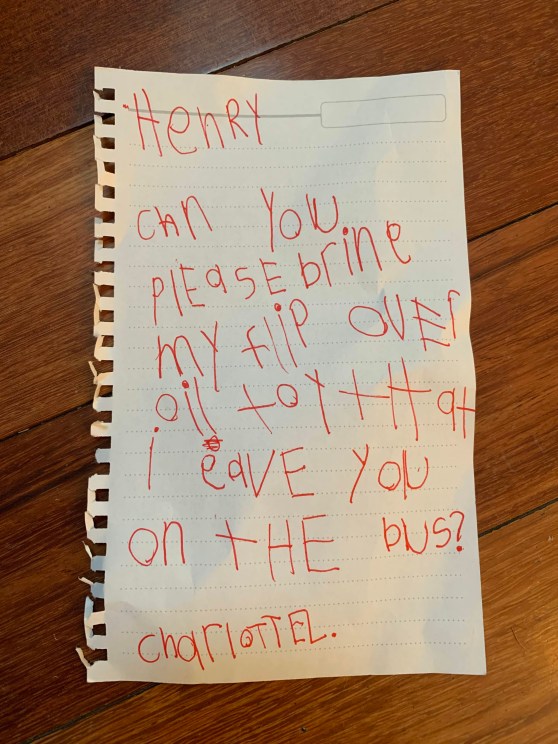 HenRY
cAn YOU
PlEasE brine
my fliP OVEr
oil toY tHat
I eaVE YOU
on tHE bus?
CharloTTEL.